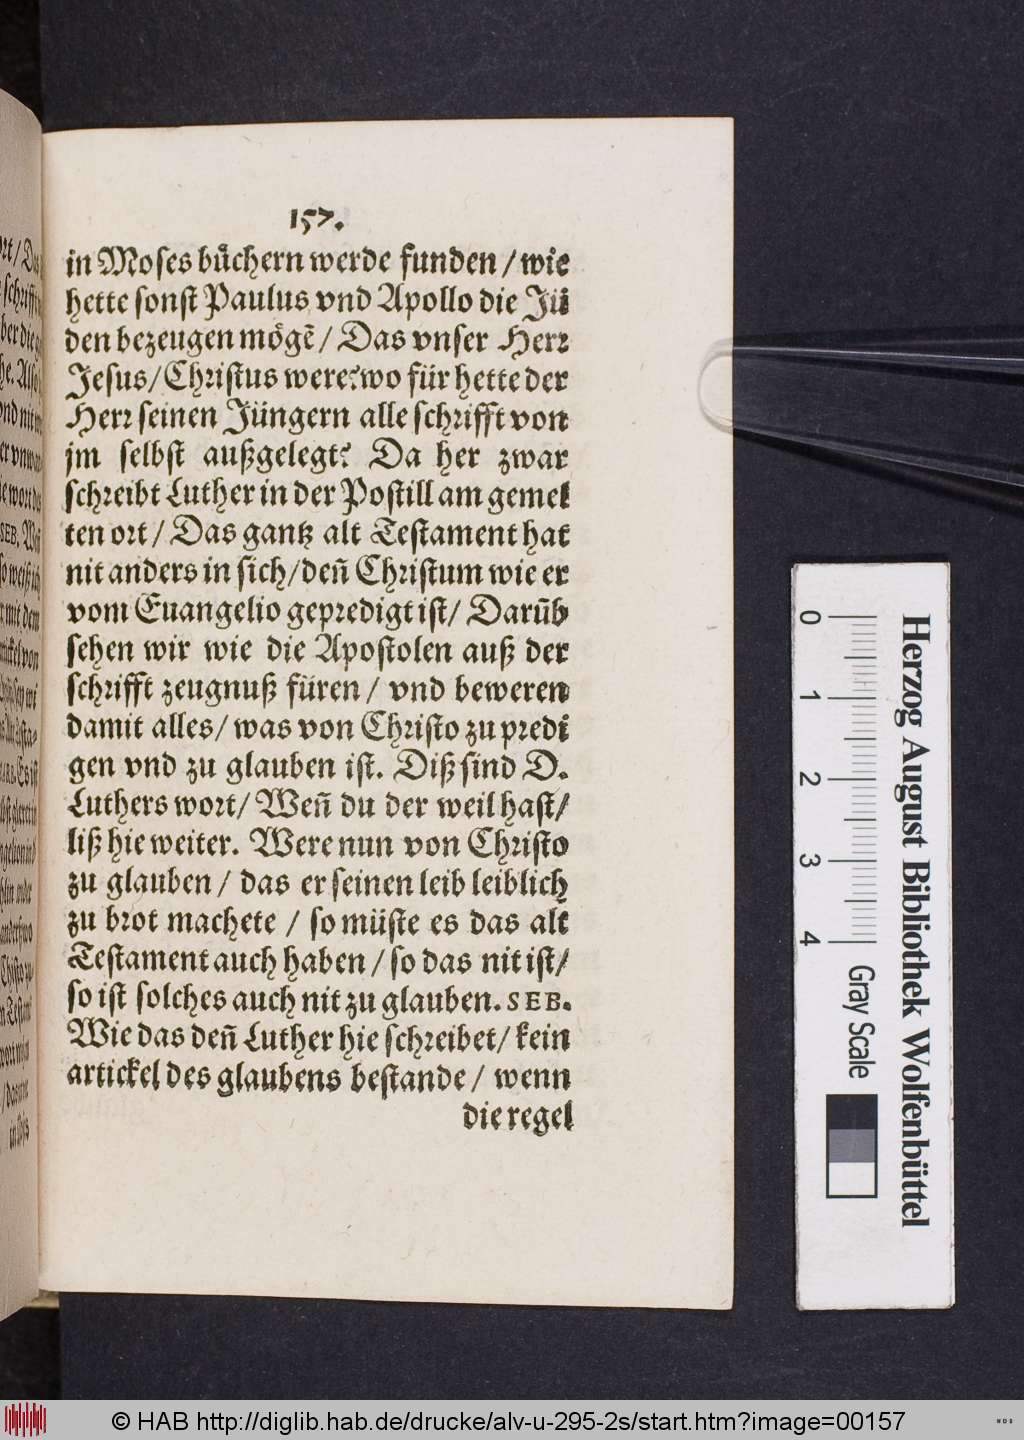 157.
in Moses bůchern werde funden / wie
hette sonst Paulus vnd Apollo die Jü
den bezeugen mögẽ / Das vnser Herr
Jesus / Christus were? wo für hette der
Herr seinen Jüngern alle schrifft von
jm selbst außgelegt? Da her zwar
schreibt Luther in der Postill am gemel
ten ort / Das gantz alt Testament hat
nit anders in sich / deñ Christum wie er
vom Euangelio gepredigt ist / Darũb
sehen wir wie die Apostolen auß der
schrifft zeugnuß füren / vnd beweren
damit alles / was von Christo zu predi
gen vnd zu glauben ist. Diß sind D.
Luthers wort / Weñ du der weil hast /
liß hie weiter. Were nun von Christo
zu glauben / das er seinen leib leiblich
zu brot machete / so müste es das alt
Testament auch haben / so das nit ist /
so ist solches auch nit zu glauben. SEB.
Wie das deñ Luther hie schreibet / kein
artickel des glaubens bestande / wenn
die regel
Herzog August Bibliothek Wolfenbüttel
0 1 2 3 4
Gray Scale
© HAB http://diglib.hab.de/drucke/alv-u-295-2s/start.htm?image=00157